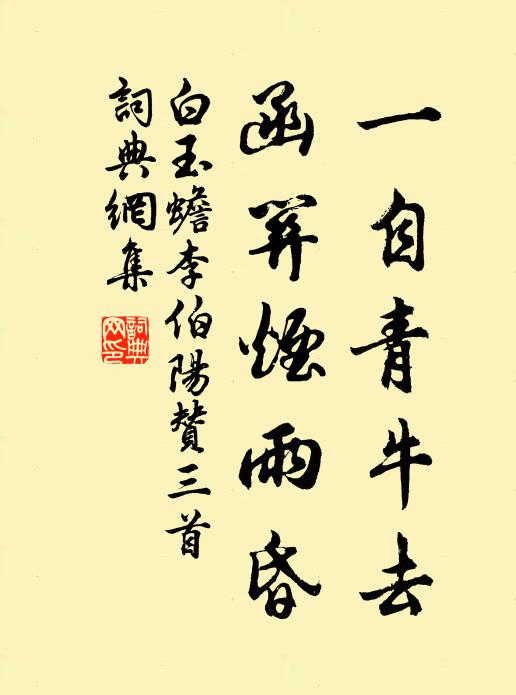 一自青牛去
函關煙雨昏
白玉蟾李伯陽贊三首
詞典網集
詞典網印